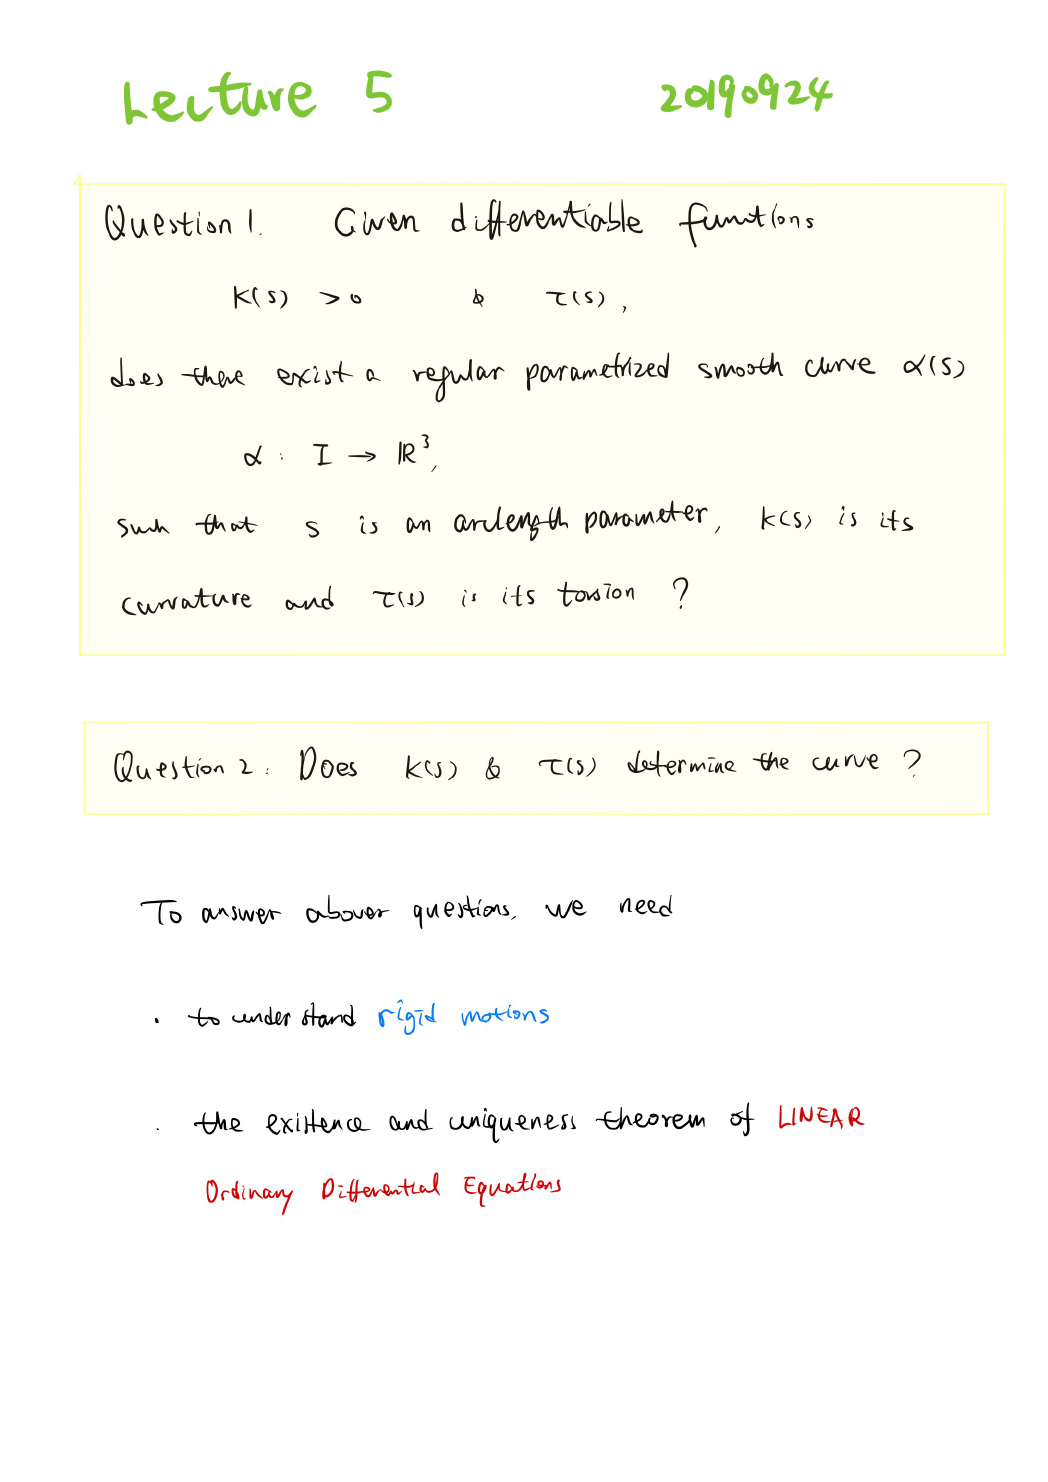 Lecture 5 20190924
Question 1. Given differentiable functions
k(s) > 0 & τ(s),
does there exist a regular parametrized smooth curve α(s)
α : I → ℝ³,
such that s is an arclength parameter, k(s) is its
curvature and τ(s) is its torsion ?
Question 2. Does k(s) & τ(s) determine the curve ?
To answer abover questions, we need
· to understand rigid motions
· the existence and uniqueness theorem of LINEAR
Ordinary Differential Equations